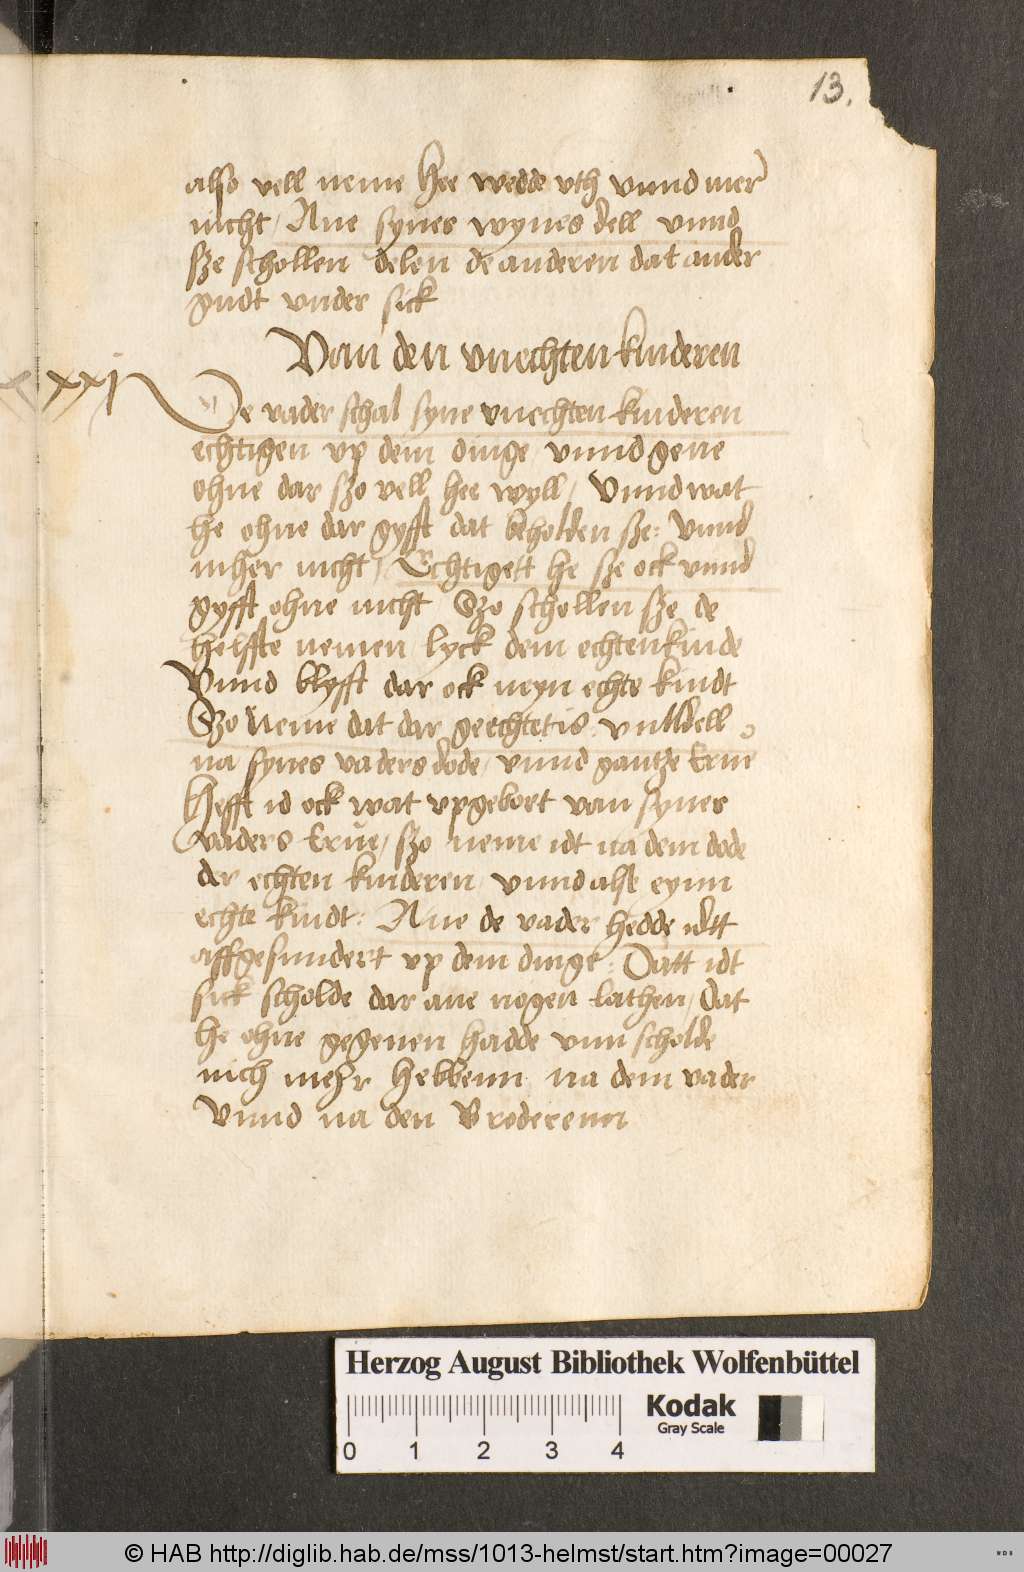 13.
also vell neme hee wedde vth vnnd mer
nicht / Ane synes wynes dell vnnd
sze schollen delen de anderen dat ander
gudt vnder sick
Van den vnechten kinderen
xxxj
De vader schal syne vnechten kinderen
echtigen vp dem dinge / vnnd geue
ohne dar szo vell hee wyll / Vnnd wat
he ohne dar gyfft dat beholden sze: Vnnd
mher nicht / Echtigett he sze ock vnnd
gyfft ohne nicht / Szo schollen sze de
helffte nemen lyck dem echten kinde
Vnnd blyfft dar ock neyn echte kindt
Szo neme dat dar geechtet is dell
na synes vaders dode / vnnd gantze Erue
Hefft id ock wat vpgebort van synes
vaders Erue / szo neme idt na dem dode
der echten kinderen / vnnd alse eynn
echte kindt: Ane de vader hedde idtt
affgesundert vp dem dinge: Datt idt
sick scholde dar ane nogen lathen / Dat
he ohne gegeuen hadde vnn scholde
nich mehr hebbenn na dem vader
Vnnd na den Broderenn
Herzog August Bibliothek Wolfenbüttel
Kodak
Gray Scale
0 1 2 3 4
© HAB http://diglib.hab.de/mss/1013-helmst/start.htm?image=00027